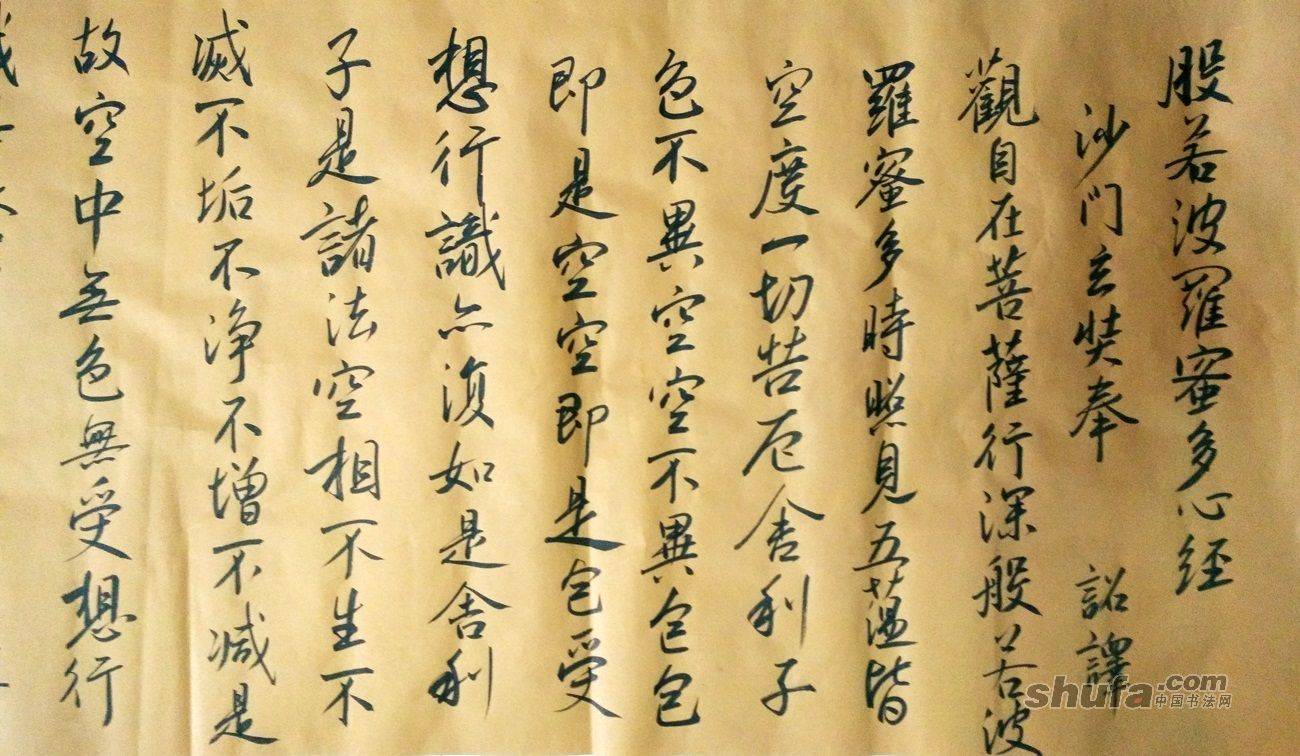 股若波羅蜜多心経
沙门玄奘奉 詔譯
觀自在菩薩行深般若波
羅蜜多時照見五蕴皆
空度一切苦厄舍利子
色不異空空不異色色
即是空空即是色受
想行識亦復如是舍利
子是諸法空相不生不
滅不垢不净不增不减是
故空中無色無受想行
shufa.com
中国书法网